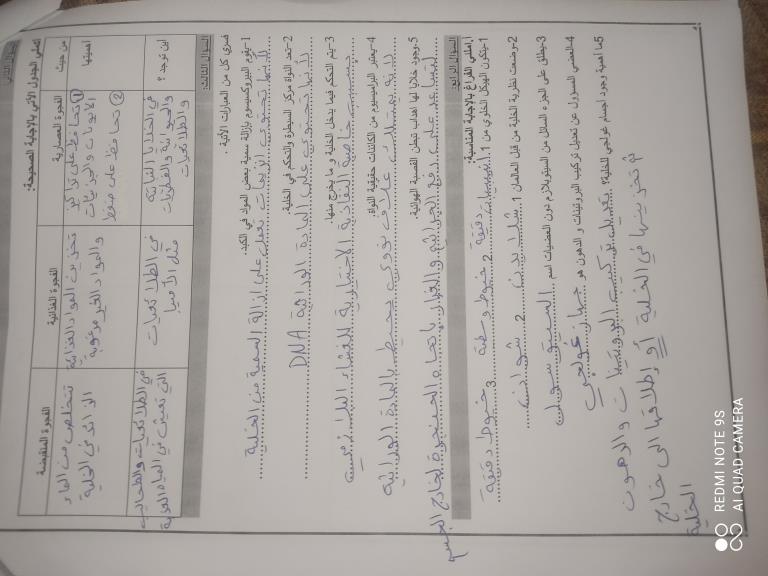 السؤال الثاني
أكملي الجدول الآتي بالإجابة الصحيحة:
من حيث
الفجوة العصارية
الفجوة الغذائية
الفجوة المنقبضة
اهميتها
① تحافظ على تراكيز
الايونات والجزيئات
② تحافظ على ضغط
تخزين المواد الغذائية
والمواد الغير مرغوبة
تتخلص من الماء
الزائد في الخلية
اين توجد ؟
في الخلايا النباتية
والحيوانية والفطريات
والطلائعيات
في الطلائعيات
مثل الأميبا
في الطلائعيات والطحالب
التي تعيش في المياه العذبة
السؤال الثالث:
فسري كل من العبارات الآتية .
1-يقوم البيروكسيسوم بإزالة سمية بعض المواد في الكبد.
لأنها تحتوي انزيمات تعمل على ازالة السمية من الخلية
2-تعد النواة مركز السيطرة والتحكم في الخلية.
لأنها تحتوي على المادة الوراثية DNA
3-يتم التحكم فيما يدخل الخلية و ما يخرج منها.
بسبب خاصية النفاذية الاختيارية للغشاء البلازمي
4-يعتبر البراميسيوم من الكائنات حقيقية النواة.
لانه يمتلك غلاف نووي يحيط بالمادة الوراثية
5-وجود خلايا لها اهداب تبطن القصبة الهوائية.
لتساعد على دفع الجراثيم والغبار باتجاه الحنجرة لخارج الجسم
السؤال الرابع:
املئي الفراغ بالإجابة المناسبة:
1-يتكون الهيكل الخلوي من 1. أنيبيبات دقيقة 2. خيوط وسطية 3. خيوط دقيقة
2-وضعت نظرية الخلية من قبل العالمان 1. شلايدن 2. شوان
3-يطلق على الجزء السائل من السيتوبلازم دون العضيات اسم السيتوسول
4-العضي المسؤول عن تعديل تركيب البروتينات و الدهون هو جهاز غولجي
5ما اهمية وجود اجسام غولجي للخلية؟ تعديل تركيب البروتينات والدهون
ثم تخزينها في الخلية أو إطلاقها الى خارج
الخلية
REDMI NOTE 9S
AI QUAD CAMERA